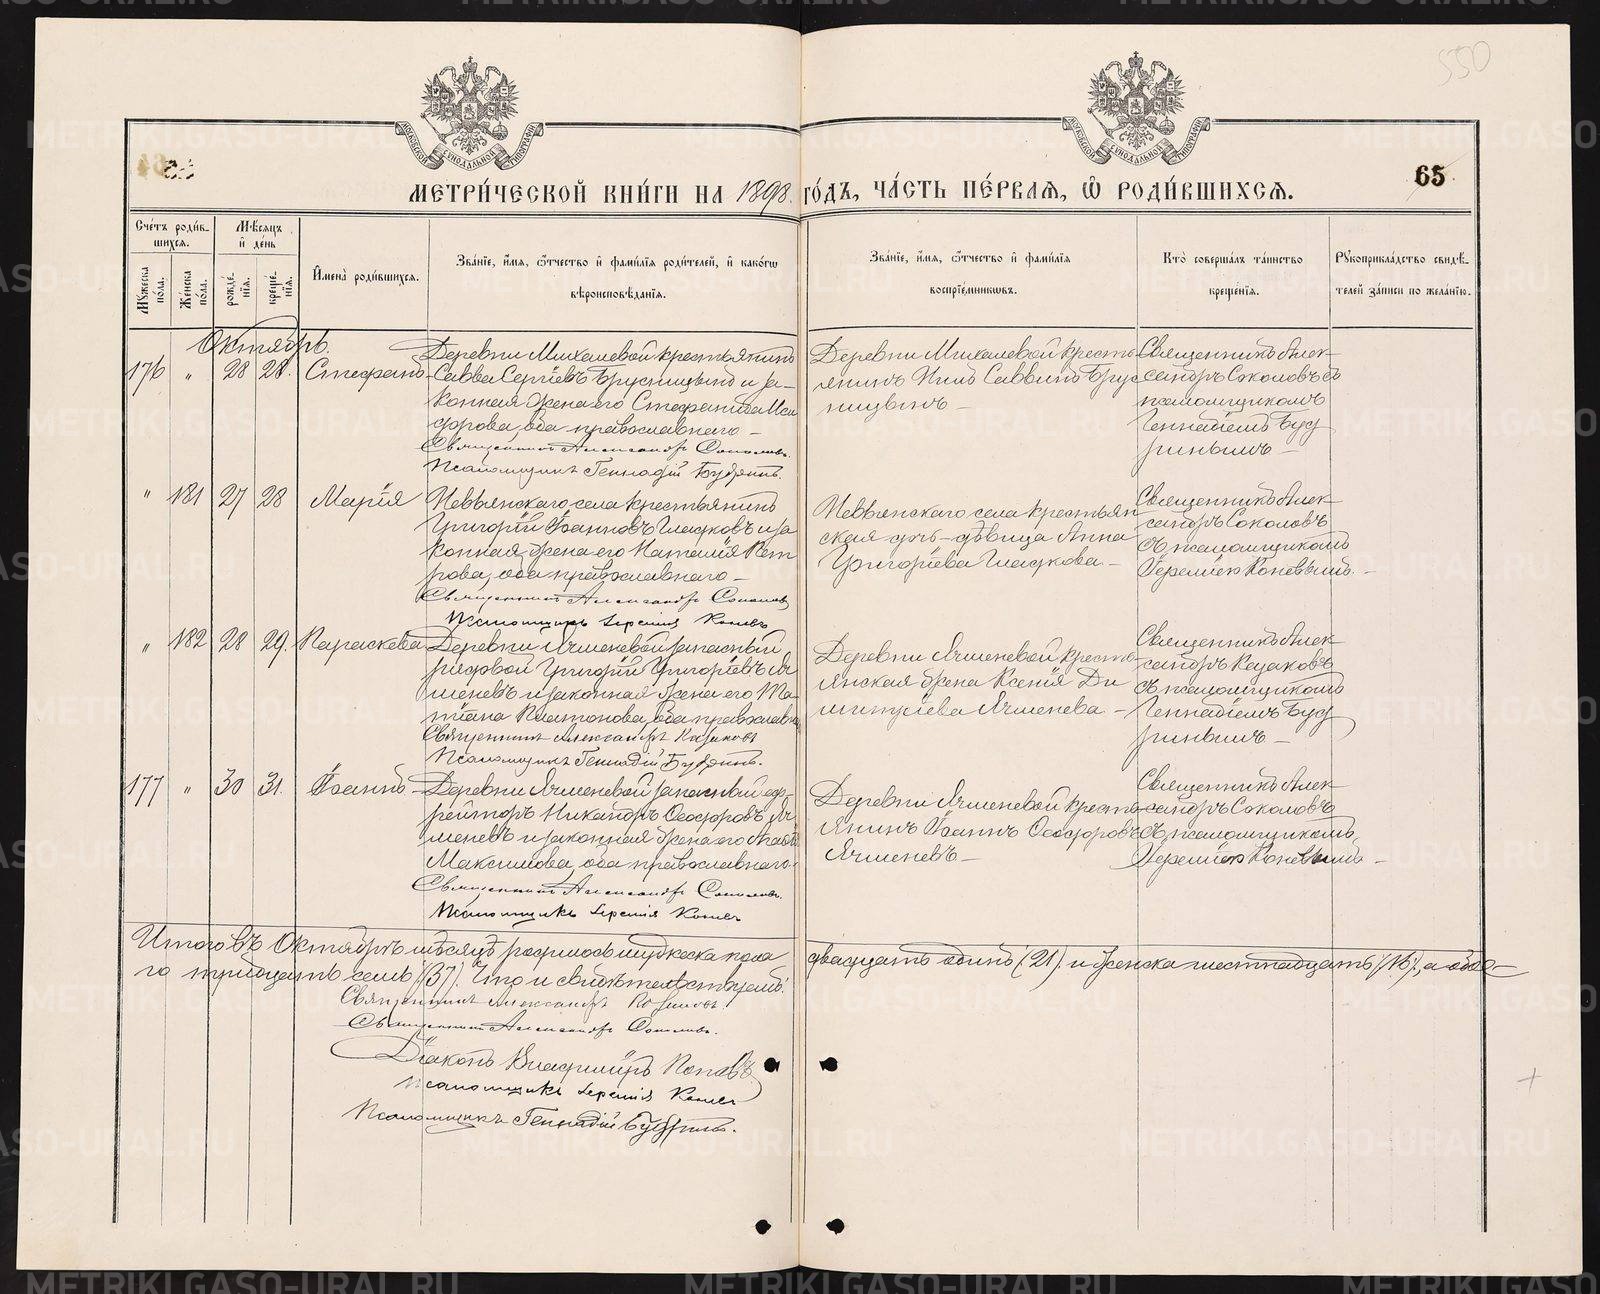 550
65
МЕТРИ́ЧЕСКОЙ КНИ́ГИ НА 1898. ГО́ДЪ, ЧА́СТЬ ПЕ́РВАЯ, Ѡ РОДИ́ВШИХСЯ.
Сче́тъ роди́вшихся.
Му́жеска по́ла.
Же́нска по́ла.
Мѣ́сяцъ и҆ де́нь
рожде́нїя.
креще́нїя.
И҆мена̀ роди́вшихся.
Зва́нїе, и҆́мя, ѻ҆́тчество и҆ фами́лїя роди́телей, и҆ како́гѡ
вѣроисповѣ́данїя.
Зва́нїе, и҆́мя, ѻ҆́тчество и҆ фами́лїя
воспрїе́мникѡвъ.
Кто̀ соверша́лъ та́инство
креще́нїя.
Рꙋкоприкла́дство свидѣ́-
телей за́писи по жела́нїю.
Октябрь.
176 " 28 28. Стефанъ
Деревни Михалевой крестьянинъ
Савва Сергіевъ Брусницынъ и за-
конная жена его Стефанида Иси
дорова, оба православнаго –
Священникъ Александръ Соколовъ.
Псаломщикъ Геннадій Будринъ.
Деревни Михалевой кресть
янинъ Нилъ Саввинъ Брус
ницынъ –
Священникъ Алек-
сандръ Соколовъ съ
псаломщикомъ
Геннадіемъ Буд
ринымъ –
" 181 27 28 Марія
Невьянскаго села крестьянинъ
Григорій Іоанновъ Гладковъ и за
конная жена его Наталія Пет
рова, оба православнаго –
Священникъ Александръ Соколовъ
Псаломщикъ Іеремія Коневъ
Невьянскаго села крестьян
ская дочь – дѣвица Анна
Григоріева Гладкова –
Священникъ Алек-
сандръ Соколовъ
съ псаломщикомъ
Іереміею Коневымъ. –
" 182 28 29. Параскева
Деревни Ячменевой запасный
рядовой Григорій Григоріевъ Яч
меневъ и законная жена его Та-
тіана Платонова, оба православна
Священникъ Александръ Казаковъ
Псаломщикъ Геннадій Будринъ.
Деревни Ячменевой кресть-
янская жена Ксенія Ди
Ячменева –
Священникъ Алек-
сандръ Казаковъ
съ псаломщикомъ
Геннадіемъ Буд
ринымъ –
177 " 30 31. Іоаннъ
Деревни Ячменевой запасный еф-
рейторъ Никандръ Ѳеодоровъ Яч
меневъ и законная жена его
Максимова, оба православнаго.
Священникъ Александръ Соколовъ.
Псаломщикъ Іеремія Коневъ
Деревни Ячменевой кресть-
янинъ Іоаннъ Ѳеодоровъ
Ячменевъ –
Священникъ Алек
сандръ Соколовъ
съ псаломщикомъ
Іереміею Коневымъ –
Итого въ Октябрѣ мѣсяцѣ родилось мужеска пола двадцать одинъ (21) и женска шестнадцать (16), а обое-
го тридцать семь (37). Что и свидѣтельствуемъ:
Священникъ Александръ Казаковъ.
Священникъ Александръ Соколовъ.
Діаконъ Владиміръ Поповъ
Псаломщикъ Іеремія Коневъ
Псаломщикъ Геннадій Будринъ.
METRIKI.GASO-URAL.RU